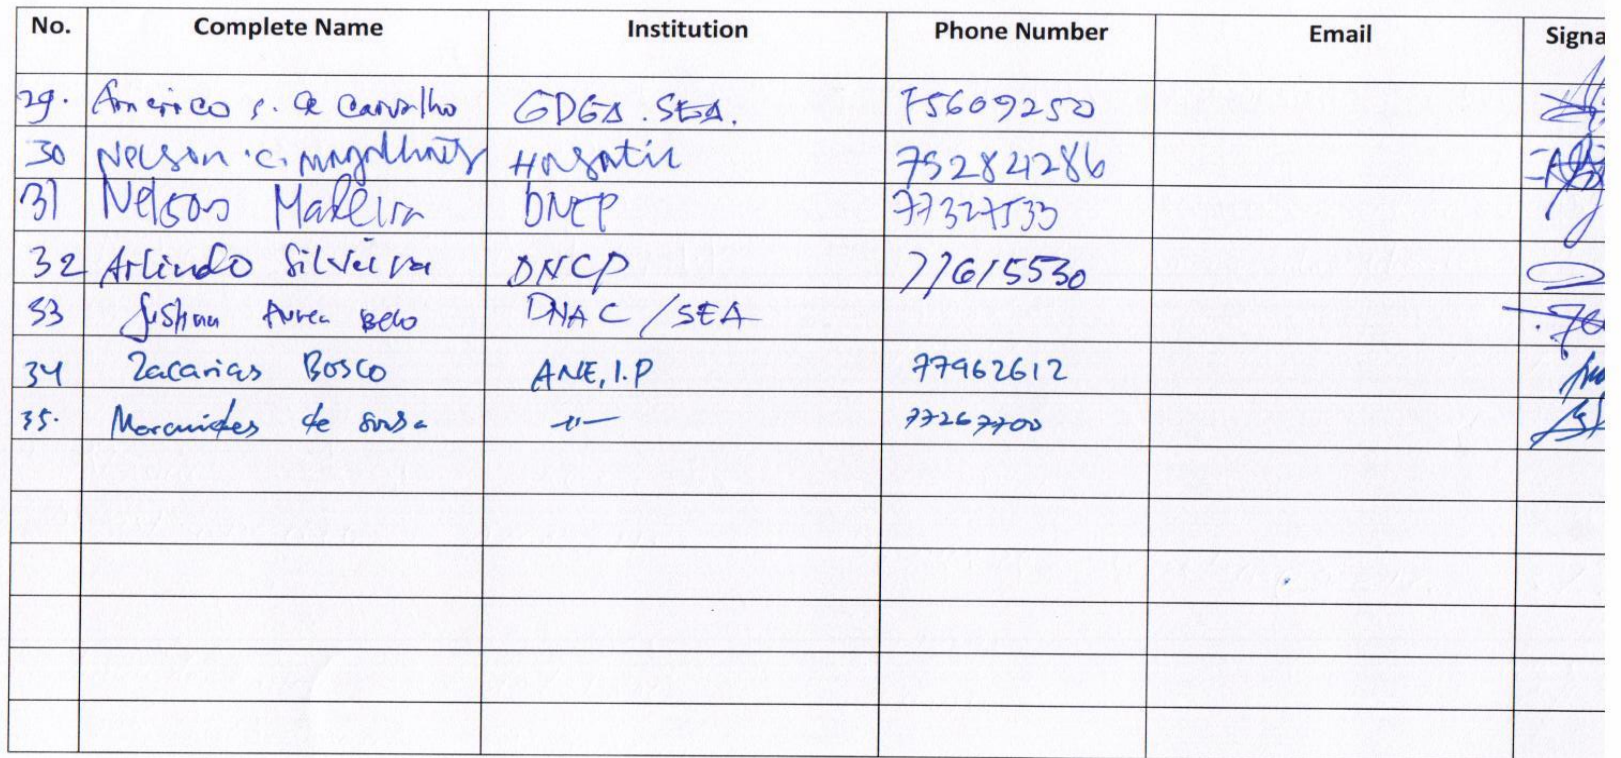 No. Complete Name Institution Phone Number Email Signa
29. Américo s. de Carvalho GDGA. SEA. 75609250
30 Nelson .c. magalhães 
31 Nelson Madeira DNEP 77327533
32 Arlindo Silveira DNCP 77615530
33 Justina Aurea Belo DNAC/SEA
34 Zacarias Bosco ANE, I.P 77962612
35. de sousa -"- 77267700